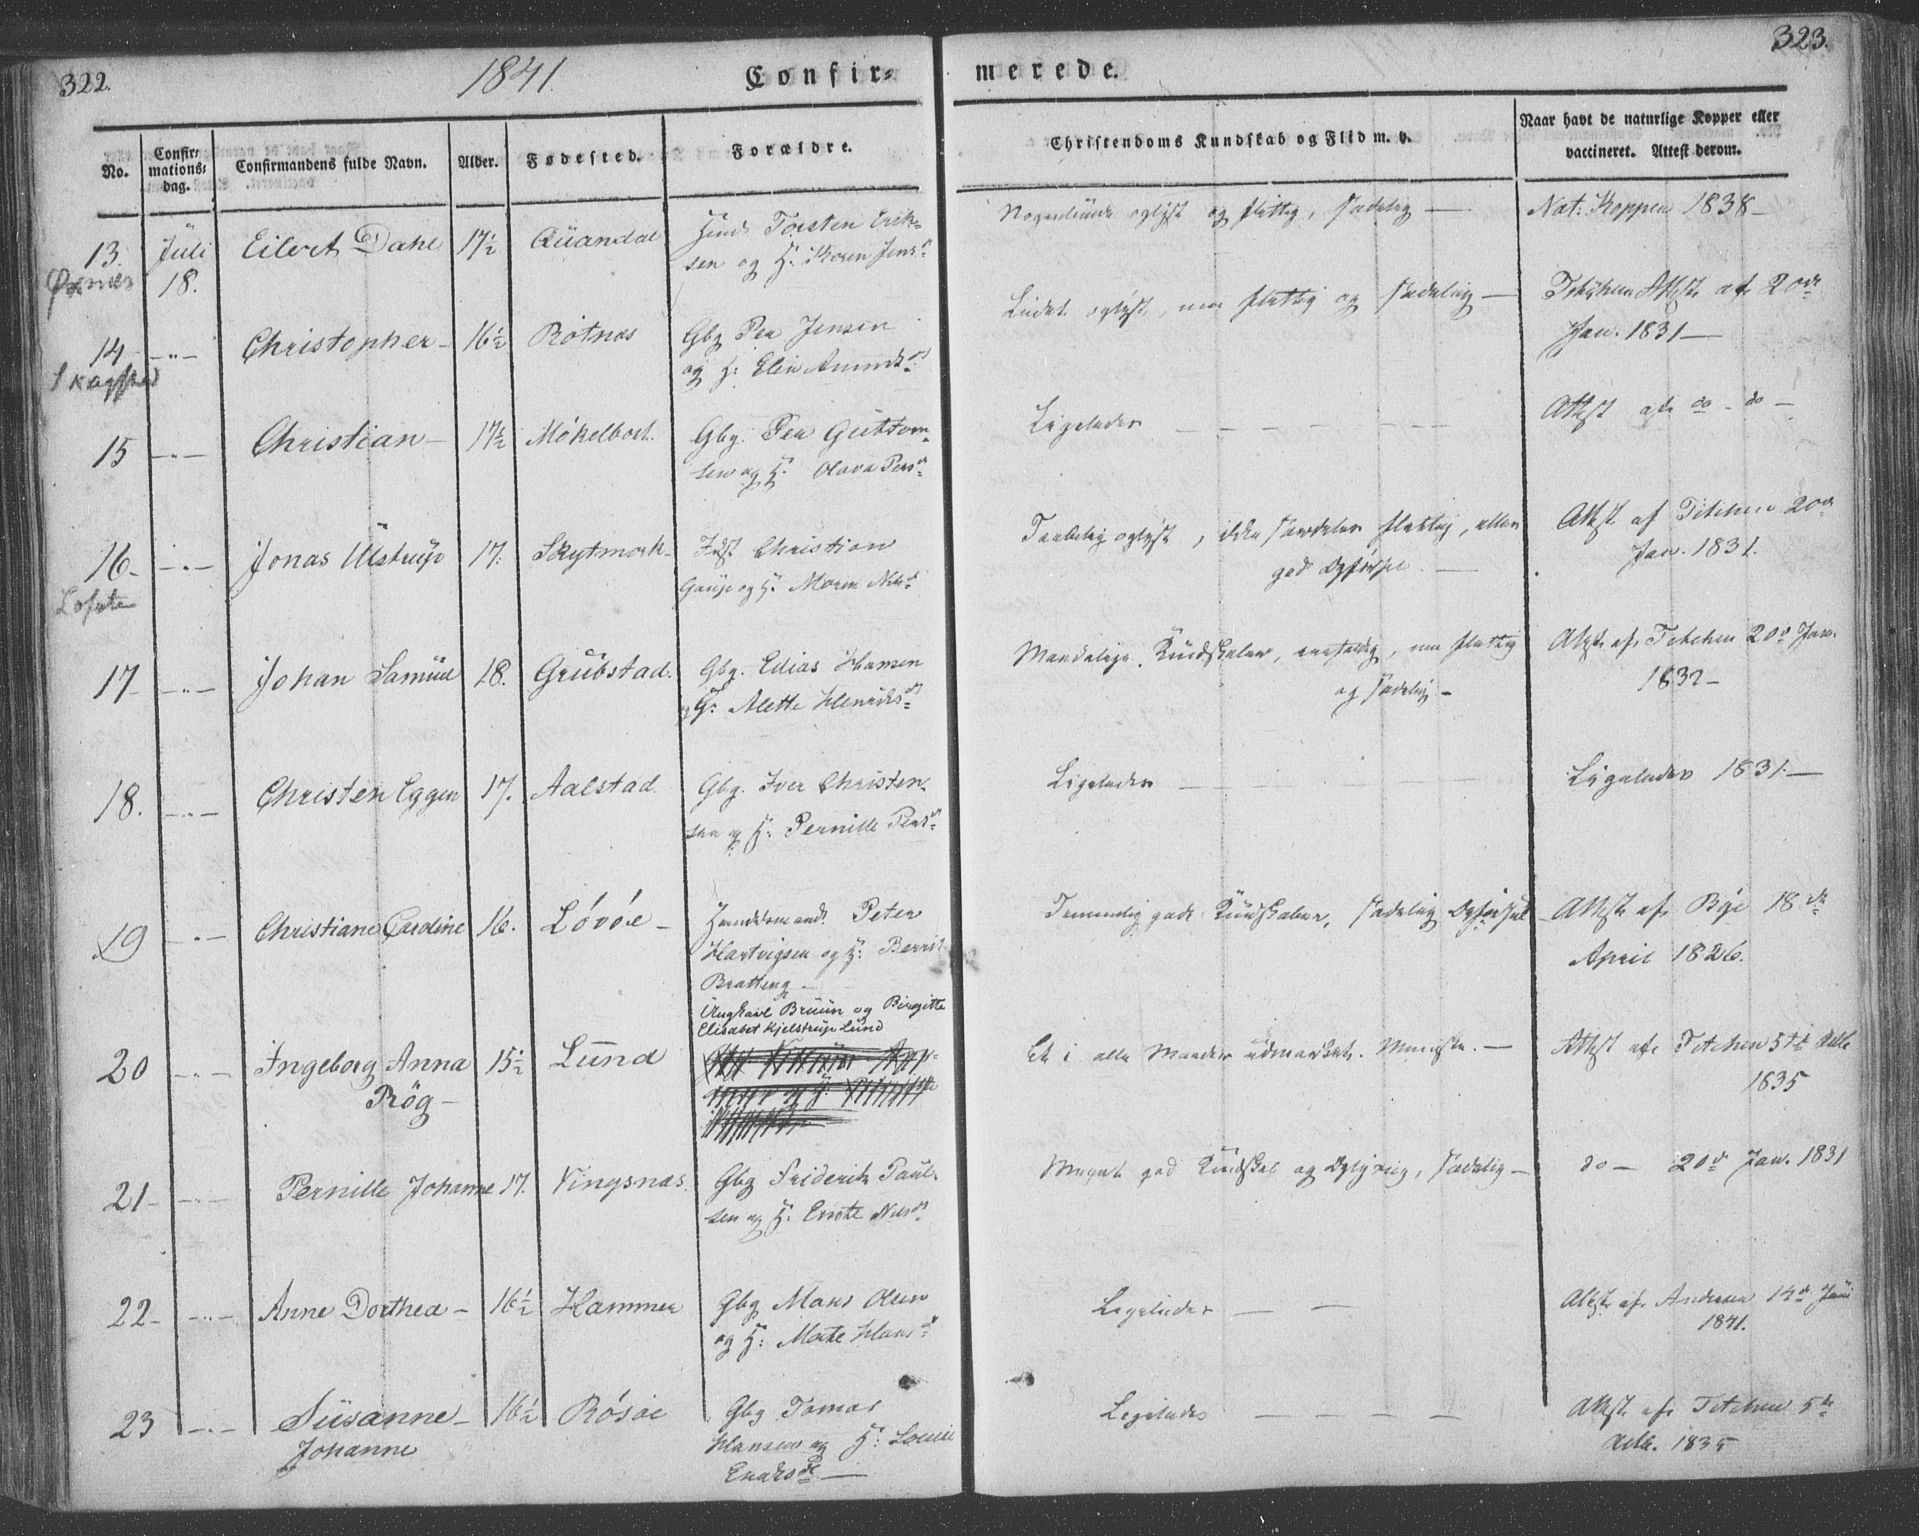 322.
1841.
Confir-
merede.
323.
No.
Confir-
mations-
dag.
Confirmandens fulde Navn.
Alder.
Fødested.
Forældre.
Christendoms Kundskab og Flid m. v.
Naar havt de naturlige Kopper eller
vaccineret. Attest derom.
13.
Juli
18.
Eilert Dahl
17½
Qüandal
Torsten Erik-
sen og H: Karen Jens
oplyst og flittig, sædelig —
Nat: Kopper 1838 —
14
—„—
Christopher —
16½
Rotnæs
Gbg Peer Jensen
og H: Elen Amunds
Lidet oplyst, men flittig og sædelig —
Attest af 20de
Jan. 1831 —
15
—„—
Christian —
17½
Møkelbost.
Gbg. Peer Guttom-
sen og H: Olava Pers
Ligeledes — — — — —
Attest af do — do —
16 —
—„—
Jonas Ulstrup
17.
Skytmark —
Inst Christian
og H: Maren Nils
Taalelig oplyst, ikke særdeles flittig, ellers
god Opførsel. —
Attest af Titchen 20de
Jan. 1831.
Lofote
17 —
—„—
Johan Samüel
18.
Grübstad.
Gbg. Elias Hansen
og H: Alette Henriks
Maadelige Kundskaber, eenfoldig, men flittig
og sædelig —
Attest af Titchen 20de Jan.
1832 —
18.
—„—
Christen Eggen
17.
Aalstad.
Gbg. Iver Christen-
sen og H: Pernille Peers
Ligeledes — —
Ligeledes 1831. —
19
—„—
Christiane Cardine
16.
Løvøe —
Handelsmand Peter
Hartvigsen og H: Berrit
Bratteng —
Temmelig gode Kundskaber, sædelig Opførsel
Attest af Bye 18de
April 1826.
20
—„—
Ingeborg Anna
Røg —
15½
Lund
Augstavl Bruun og Birgitte
Elisabet Kjelstrup Lund
Et i alle Maader udmærket Menneske. —
Attest af Titchen 5te
1835
21 —
—„—
Pernille Johanne
17.
Vingsnæs.
Gbg Friderik Paul-
sen og H: Nils
Meget god Kundskab og Oplysning, sædelig —
do — 20de Jan. 1831
22 —
—„—
Anne Dorthea —
16½
Hammer
Gbg Mons Olsen
og H: Marte Hans
Ligeledes — —
Attest af Andersen 14de Juni
1841.
23
—„—
Susanne —
Johanne
16½
Røsøe
Gbg Tomas
Hansen og H:
Ligeledes — — — —
Attest af Titchen 5te
1835